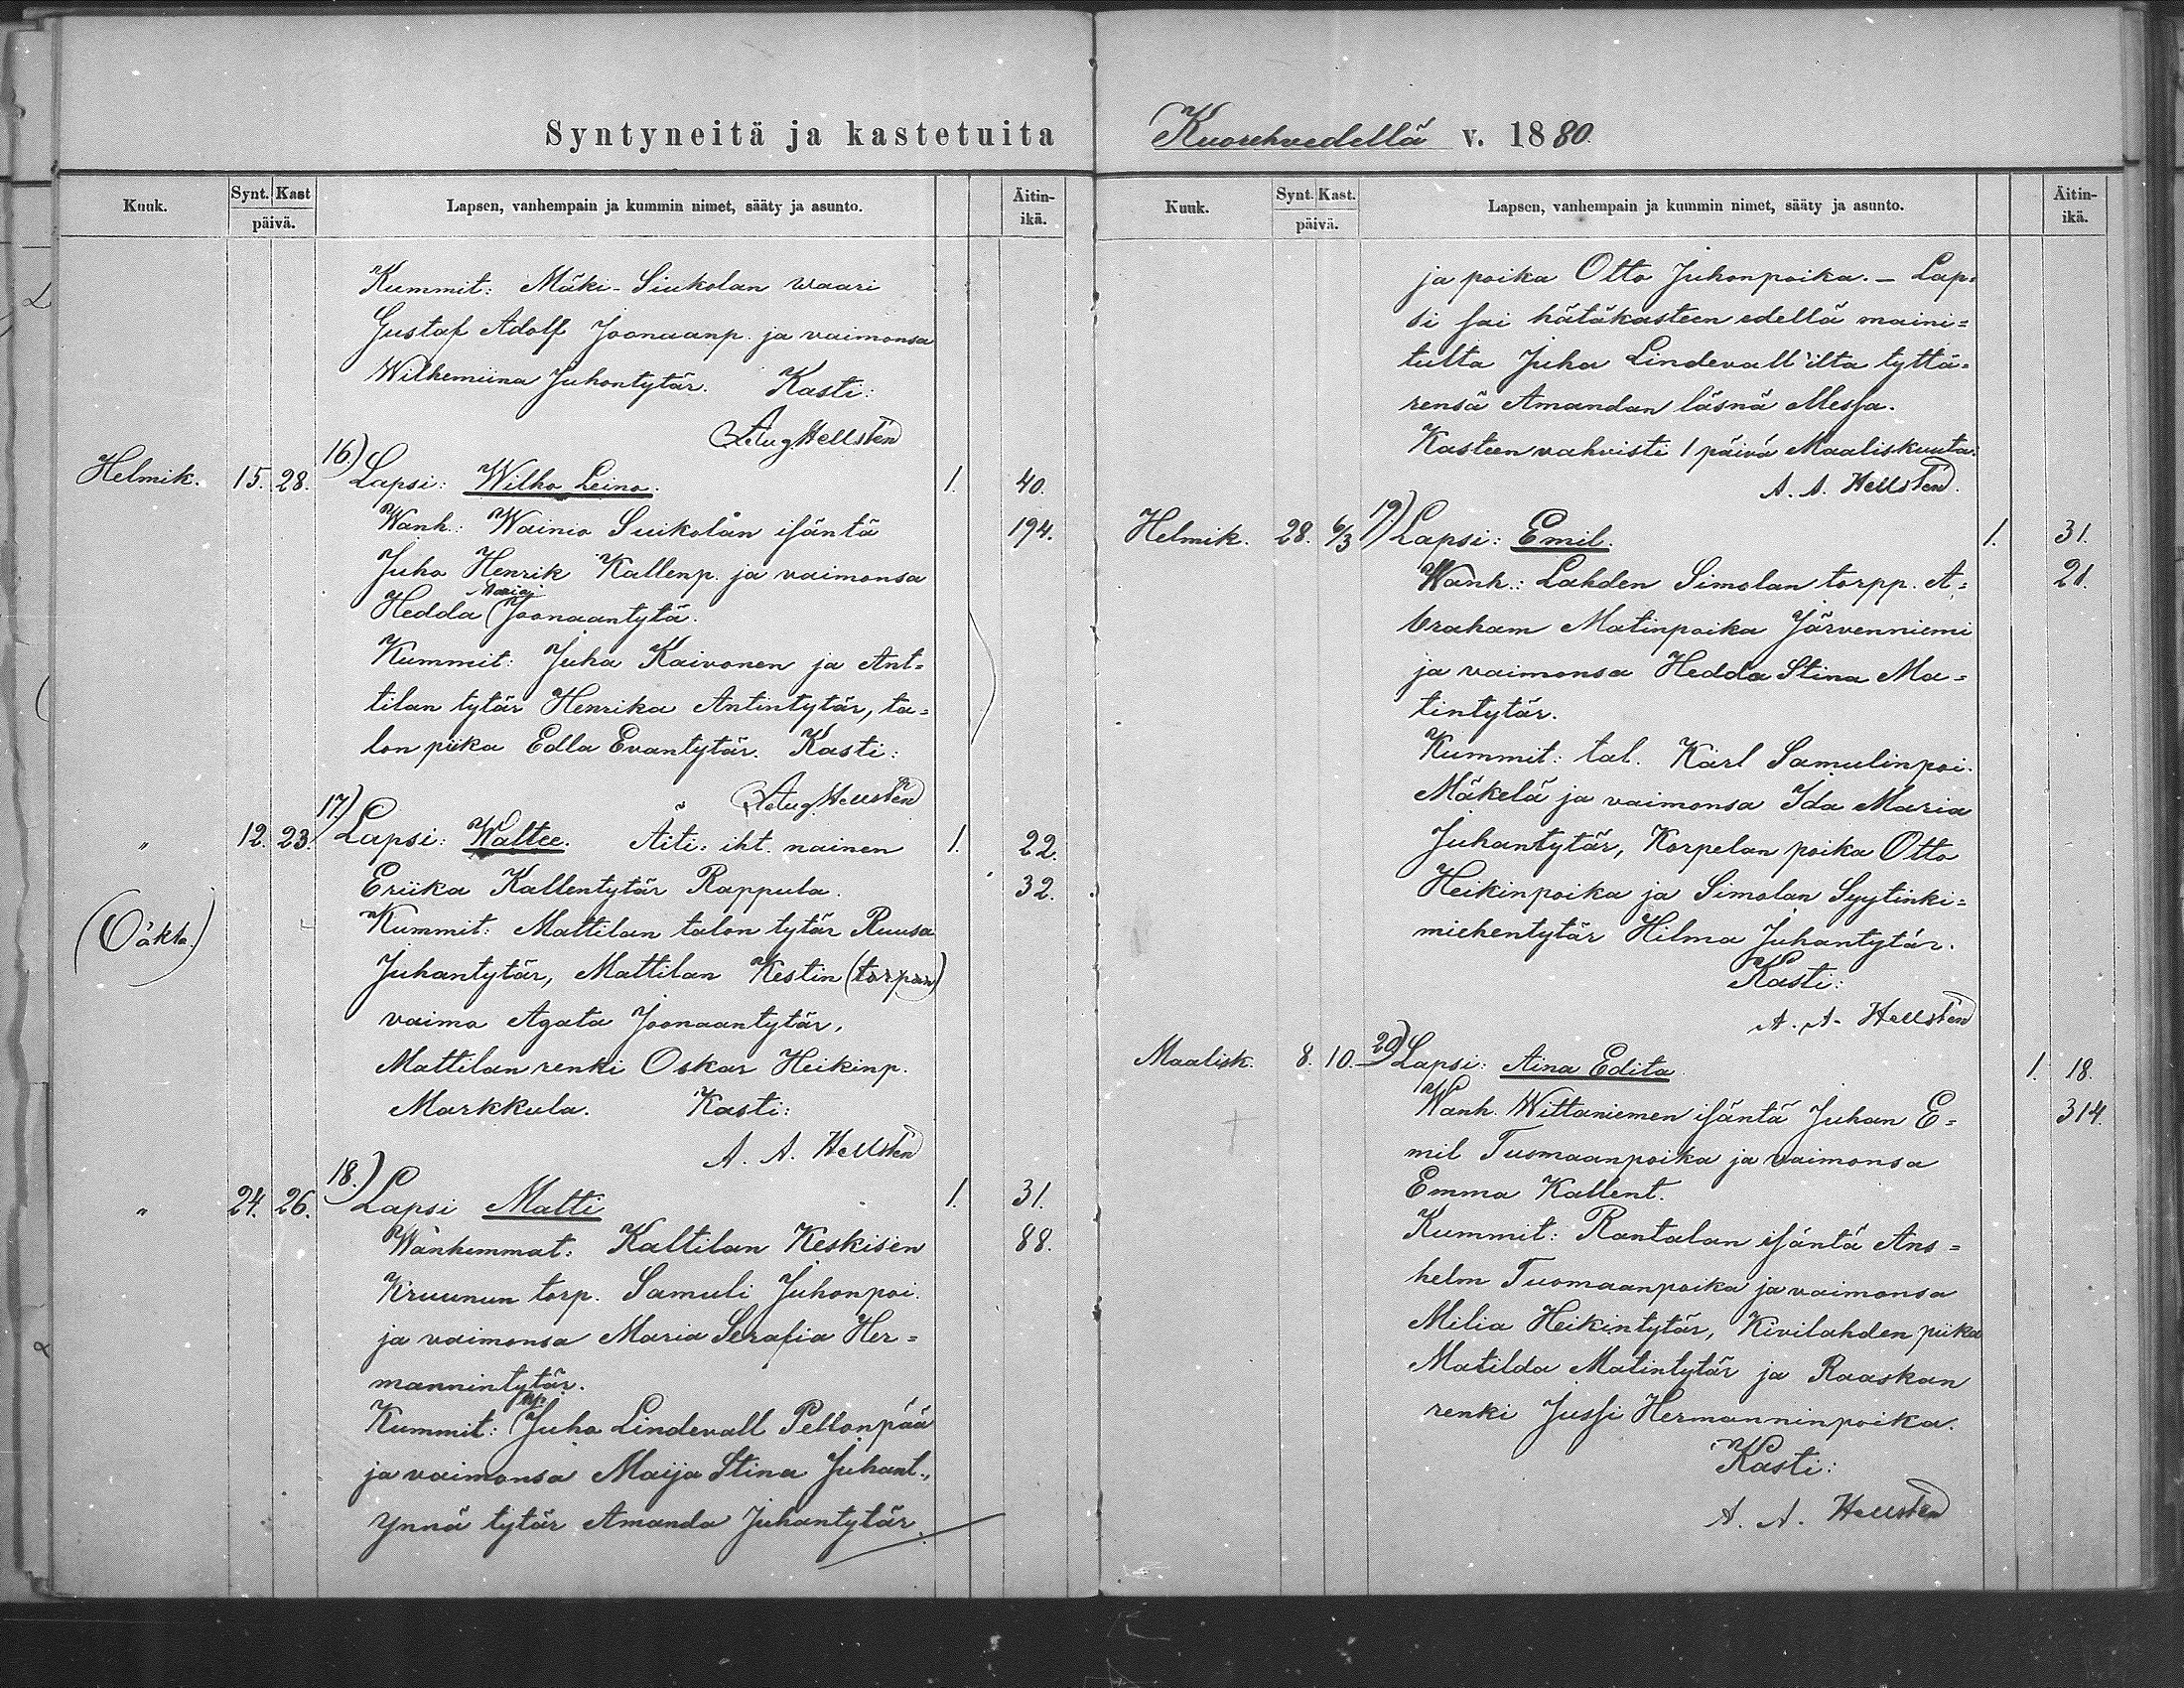 Syntyneitä ja kastetuita
Kuuk. Synt. Kast päivä. Lapsen, vanhempain ja kummin nimet, sääty ja asunto. Äitin-ikä.
Kummit: Mäki-Siukolan waari
Gustaf Adolf Joonaanp. ja vaimonsa
Wilhemiina Juhontytär. Kasti:
Aug Hellstén
Helmik. 15. 28. 16.) Lapsi: Wilho Leino. 1. 40.
Wanh.: Wainio Suikolan isäntä 194.
Juho Henrik Kallenp. ja vaimonsa
Maria
Hedda Joonaantytä.
Kummit: Juha Kaivonen ja Ant=
tilan tytär Henrika Antintytär, ta=
lon piika Edla Evantytär. Kasti:
Aug Hellstén
" 12. 23. 17.) Lapsi: Waltee. Äiti: iht. nainen 1. 22.
Eriika Kallentytär Rappula. 32.
(Oäkta.) Kummit: Mattilan talon tytär Ruusa
Juhantytär, Mattilan Kestin (torpan)
vaimo Agata Joonaantytär,
Mattilan renki Oskar Heikinp.
Markkula. Kasti:
A. A. Hellstén
" 24. 26. 18.) Lapsi Matti 1. 31.
Wanhemmat: Kaltilan Keskisen 88.
Kruunun torp. Samuli Juhonpoi.
ja vaimonsa Maria Serafia Her=
mannintytär.
Kummit: Juho Lindevall Pellonpää
ja vaimonsa Maija Stina Juhant.,
Ynnä tytär Amanda Juhantytär
Kuorehvedellä v. 1880.
Kuuk. Synt. Kast. päivä. Lapsen, vanhempain ja kummin nimet, sääty ja asunto. Äitin-ikä.
ja poika Otto Juhonpoika. — Lap=
si sai hätäkasteen edellä maini=
tulta Juha Lindevall'ilta tyttä=
rensä Amandan läsnä ollessa.
Kasteen vahvisti 1 päivä Maaliskuuta.
A. A. Hellstén.
Helmik. 28. 6/3 19.) Lapsi: Emil. 1. 31.
Wanh.: Lahden Simolan torpp. A= 21.
braham Matinpoika Järvenniemi
ja vaimonsa Hedda Stina Ma=
tintytär.
Kummit: tal. Karl Samulinpoi.
Mäkelä ja vaimonsa Ida Maria
Juhantytär, Korpelan poika Otto
Heikinpoika ja Simolan Syytinki=
miehentytär Hilma Juhantytär.
Kasti:
A. A. Hellstén
Maalisk. 8. 10. 20.) Lapsi: Aina Edita 1. 18.
Wanh. Wittaniemen isäntä Juhan E= 314.
mil Tuomaanpoika ja vaimonsa
Emma Kallent.
Kummit: Rantalan isäntä Ans=
helm Tuomaanpoika ja vaimonsa
Milia Heikintytär, Kivilahden piika
Matilda Matintytär ja Raaskan
renki Jussi Hermanninpoika.
Kasti:
A. A. Hellstén